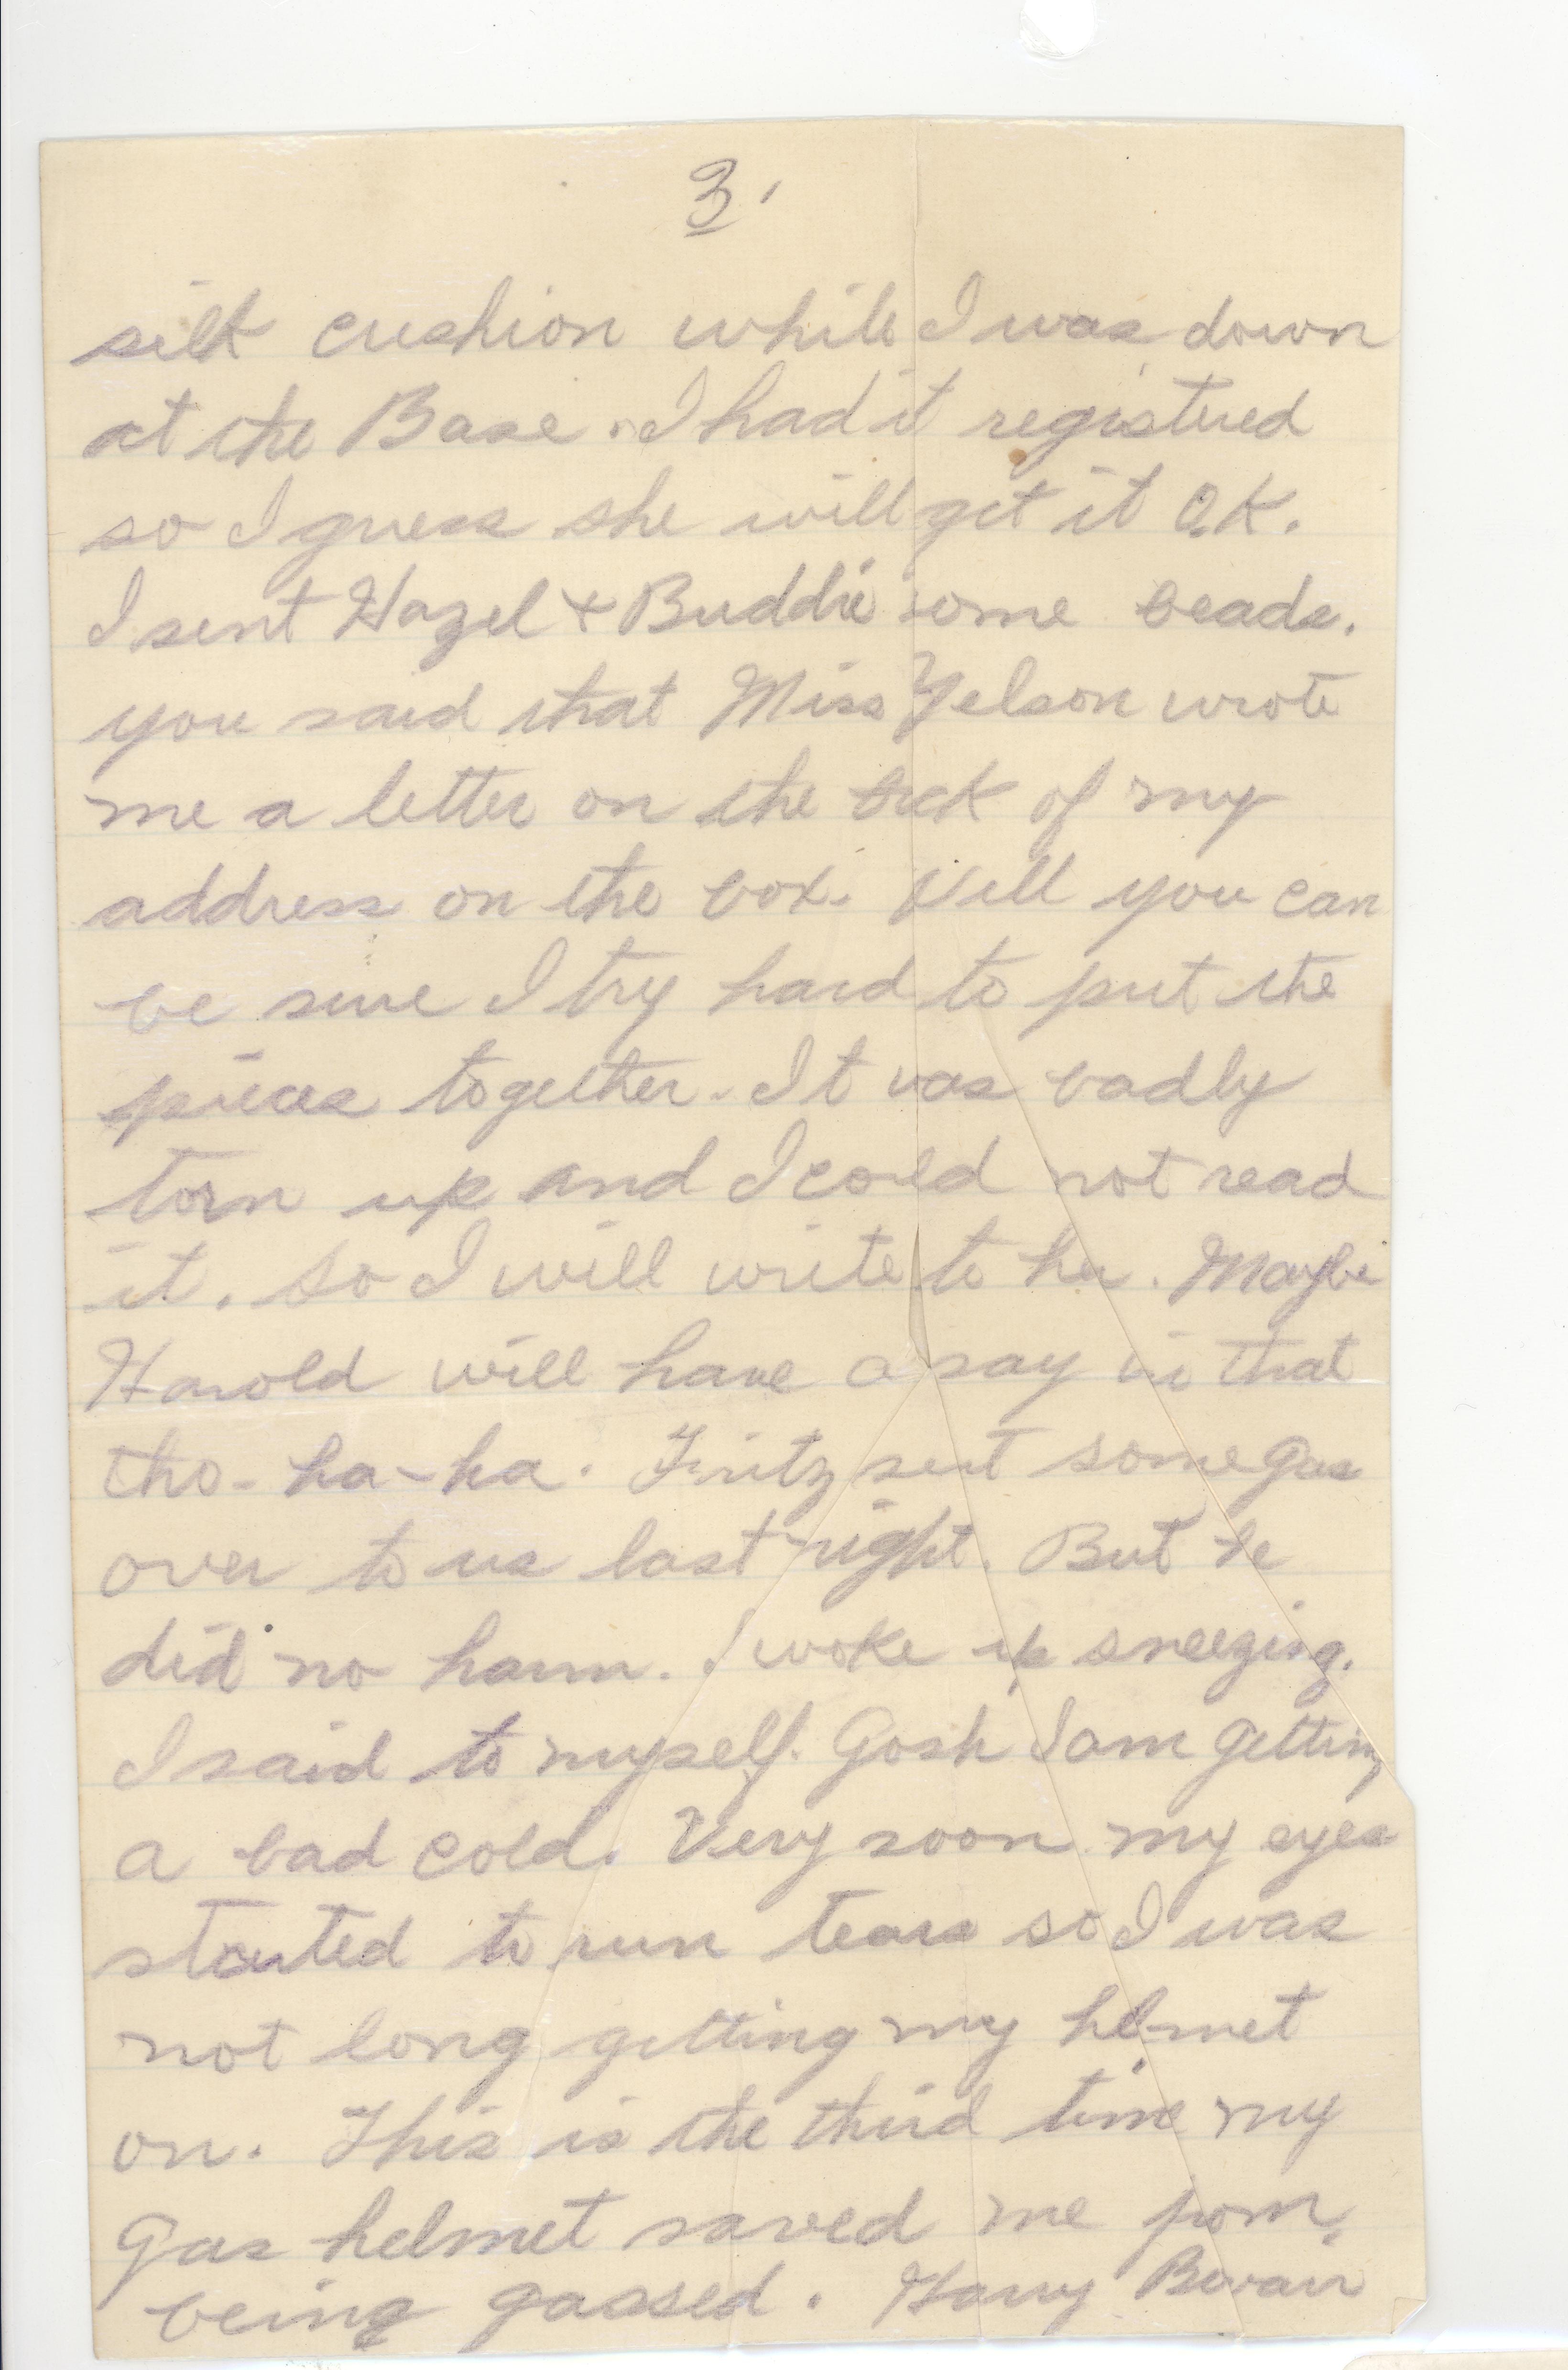 3.
silk cushion while I was down
at the Base. I had it registered
so I guess she will get it O.K.
I sent Hazel + Buddie some beads.
you said that Miss Yelson wrote
me a letter on the back of my
address on the box. Well you can
be sure I try hard to put the
pieces together. It was badly
torn up and I could not read
it. So I will write to her. Maybe
Harold will have a say in that
tho - ha - ha. Fritz sent some gas
over to us last night. But he
did no harm. I woke up sneezing.
I said to myself. Gosh I am getting
a bad cold. Very soon my eyes
started to run tears so I was
not long getting my helmet
on. This is the third time my
Gas helmet saved me from
being gassed. Harry